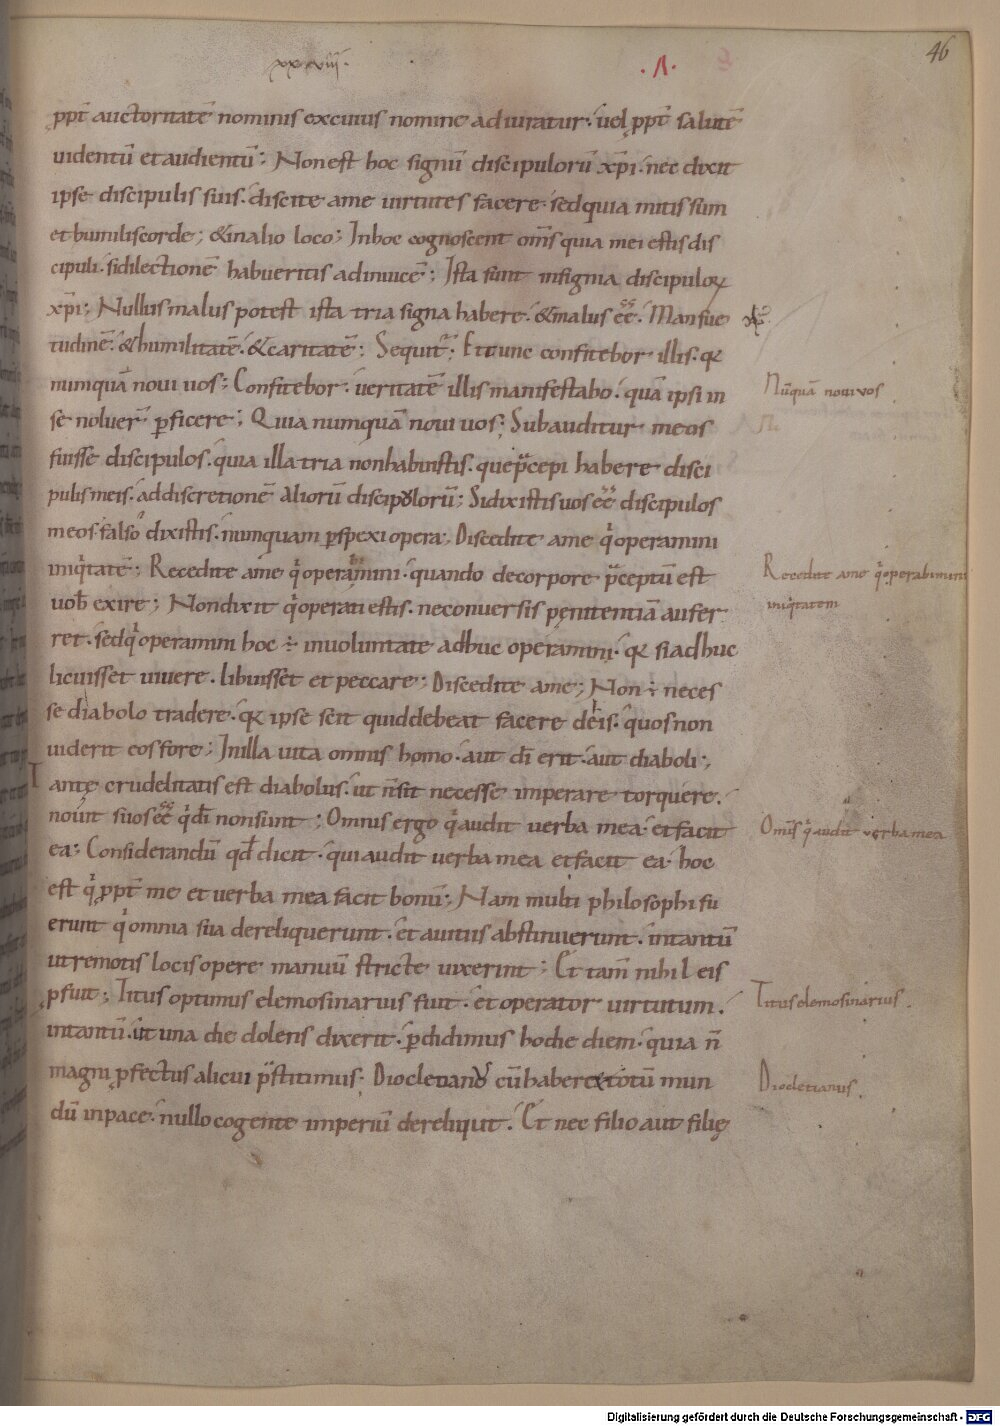 46
xxxviii.
.Λ.
ꝓpt̄ auctoritatē nominis excuius nomine adiuratur. uel ꝓpt̄ salutē
uidentū et audientū; Non est hoc signū discipulorū xp̄i. nec dixit
ipse discipulis suis. discite ame uirtutes facere sed quia mitis sum
et humilis corde; & in alio loco; In hoc cognoscent om̄s quia mei estis dis
cipuli. si dilectionē habueritis adinuicē; Ista sunt insignia discipuloꝝ
xp̄i; Nullus malus potest ista tria signa habere. & malus eē. Mansue
tudinē. & humilitatē. & caritatē; Sequit̄; Et tunc confitebor illis. qꝛ
numquā noui uos; Confitebor. ueritatē illis manifestabo. quā ipsi in
Nūquā noui vos
se noluer̄ ꝑficere; Quia numquā noui uos; Subauditur meos
fuisse discipulos. quia illa tria non habuistis. que p̄cepi habere disci
pulis meis. ad discretionē aliorū discipulorū; Si dixistis uos eē discipulos
meos. falso dixistis. numquam ꝑspexi opera; Discedite ame qͥ operamini
iniqͥtatē; Recedite ame qͥ operamini. quando decorpore p̄ceptū est
Recedite ame qͥ operabimini
iniqͥtatem
uob̄ exire; Non dixit qͥ operati estis. ne conuersis pęnitentiā aufer
ret. sed qͥ operamini hoc ÷ in uoluntate adhuc operamini. qꝛ si adhuc
licuisset uiuere. libuisset et peccare; Discedite ame; Non ÷ neces
se diabolo tradere. qꝛ ipse scit quid debeat facere de his. quos non
uiderit eos fore; In illa uita omnis homo. aut dī erit. aut diaboli;
Tantę crudelitatis est diabolus. ut n̄ sit necesse imperare torquere.
nouit suos eē qͥ dī non sunt; Omnis ergo qͥ audit uerba mea. et facit
Om̄is qͥ audit verba mea
ea; Considerandū qd̄ dicit. qui audit uerba mea et facit ea. hoc
est qͥ ꝓpt̄ me et uerba mea facit bonū; Nam multi philosophi fu
erunt qͥ omnia sua dereliquerunt. et a uitiis abstinuerunt. intantū
ut remotis locis opere manuū stricte uixerint; Et tam̄ nihil eis
ꝓfuit; Titus optimus elemosinarius fuit. et operator uirtutum.
Titus elemosinarius.
intantū. ut una die dolens dixerit. ꝑdidimus hodie diem. quia n̄
magni ꝓfectus alicui p̄stitimus. Diocletianus cū haber& totū mun
Diocletianus.
dū in pace. nullo cogente imperiū dereliquit. Et nec filio aut filię
Digitalisierung gefördert durch die Deutsche Forschungsgemeinschaft - DFG